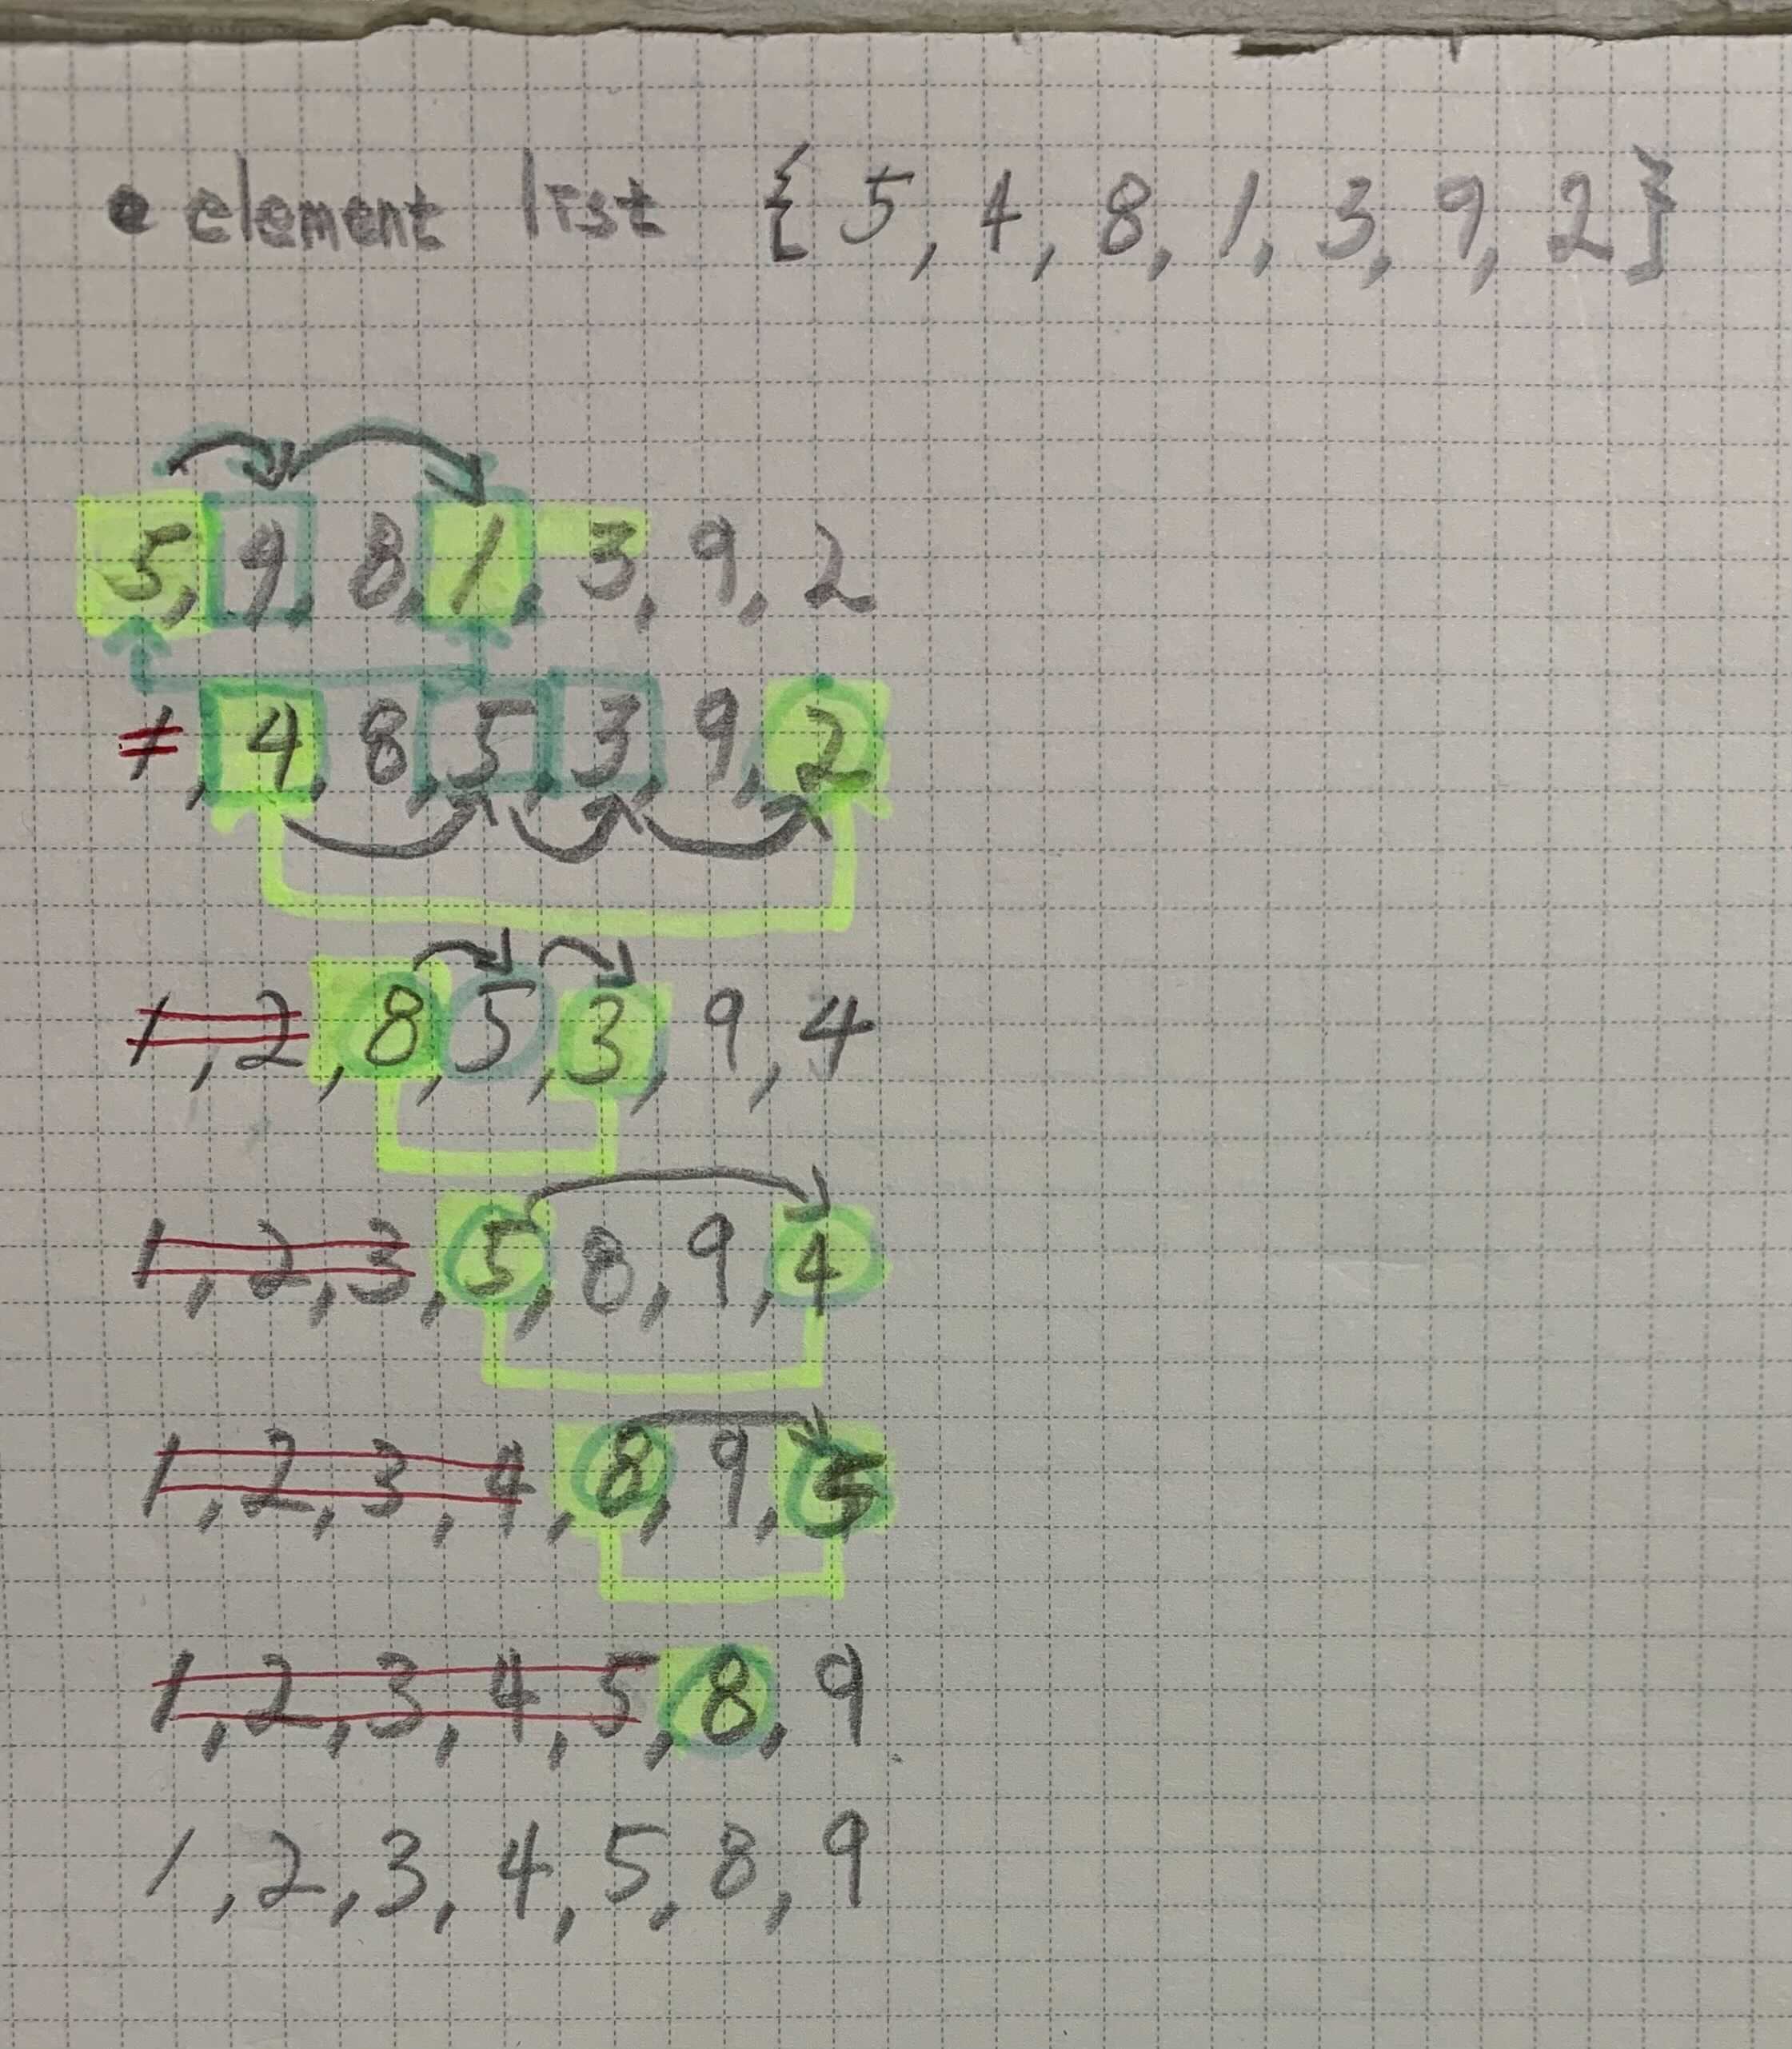 • element list { 5, 4, 8, 1, 3, 9, 2 }
5, 4, 8, 1, 3, 9, 2
1, 4, 8, 5, 3, 9, 2
1, 2, 8, 5, 3, 9, 4
1, 2, 3, 5, 8, 9, 4
1, 2, 3, 4, 8, 9, 5
1, 2, 3, 4, 5, 8, 9
1, 2, 3, 4, 5, 8, 9